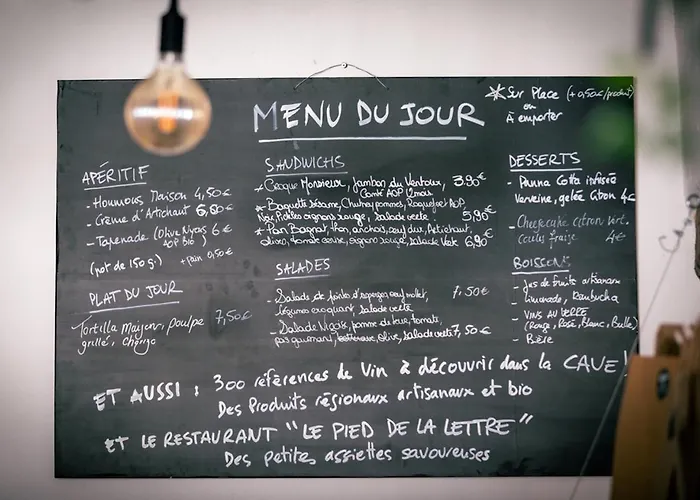 MENU DU JOUR
* Sur Place (+0,50€/produit)
ou
À emporter
APÉRITIF
- Houmous Maison 4,50€
- Crème d'Artichaut 6,60€
- Tapenade (Olive Niçoise 6€
AOP BIO)
(pot de 150 g.) + pain 0,50€
PLAT DU JOUR
Tortilla Maison, poulpe 7,50€
grillé, chorizo
SANDWICHS
* Croque Monsieur, Jambon du Ventoux, 3.90€
Comté AOP 12 mois
* Baguette Sésame, Chutney pommes, Roquefort AOP,
Noix, Pickles oignons rouge, Salade verte. 5,90€
* Pan Bagnat, thon, anchois, oeuf dur, Artichaut,
olive, tomate cerise, oignons rouge, salade verte 6,90€
SALADES
- Salade de pointes d'asperges, oeuf mollet, 7,50€
légumes croquant, salade verte
- Salade Niçoise, pomme de terre, tomate,
olive, salade verte 7,50€
DESSERTS
- Panna Cotta infusée
Verveine, gelée Citron 4€
- Cheesecake citron vert.
Coulis fraise 4€
BOISSONS
- Jus de fruits artisanaux
- Limonade, Kombucha
- VINS AU VERRE
(Rouge, Rosé, Blanc, Bulle)
- Bière
ET AUSSI : 300 références de Vin à découvrir dans la CAVE!
Des Produits régionaux artisanaux et bio
ET LE RESTAURANT "LE PIED DE LA LETTRE"
Des Petites assiettes savoureuses